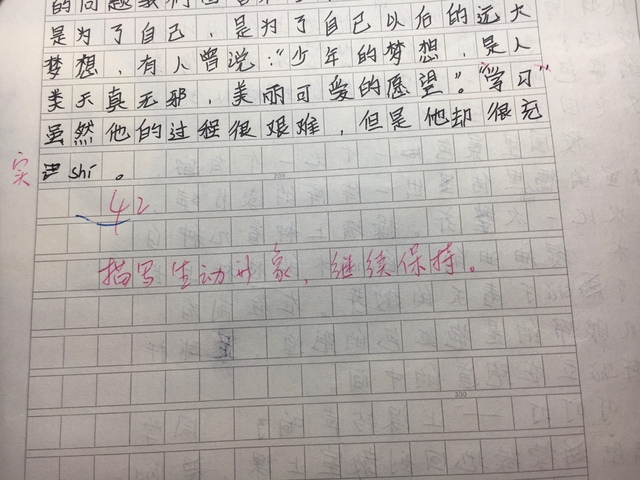 的问题
是为了自己，是为了自己以后的远大
梦想，有人曾说：“少年的梦想，是人
类天真无邪，美丽可爱的愿望。”“学习”
虽然他的过程很艰难，但是他却很充
实 shí。
42
描写生动形象，继续保持。
200
300